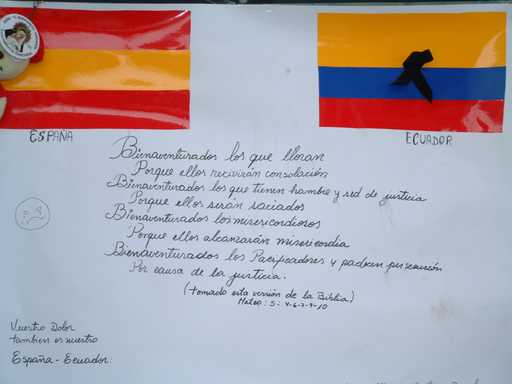 ESPAÑA
ECUADOR
Bienaventurados los que lloran
Porque ellos recivirán consolación
Bienaventurados los que tienen hambre y sed de justicia
Porque ellos serán saciados
Bienaventurados los misericordiosos
Porque ellos alcanzarán misericordia
Bienaventurados los Pacificadores y padecen persecución
Por causa de la justicia.
(tomado esta versión de la Biblia)
Mateo: 5:
Vuestro Dolor
tambien es nuestro
España - Ecuador: